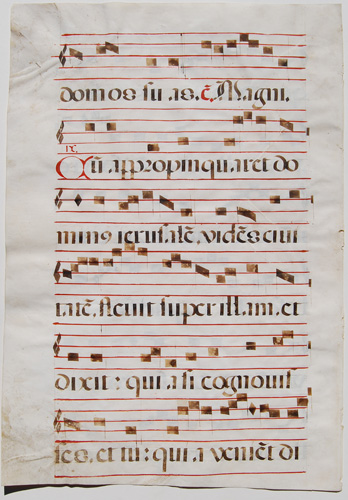 domos suas. c̃. Magni.
Cũ appropinquaret do
min9 ierusalẽ, vidẽs ciui
tatẽ, fleuit super illam, et
dixit: quia si cognouis
ses, et tu: quia venient di